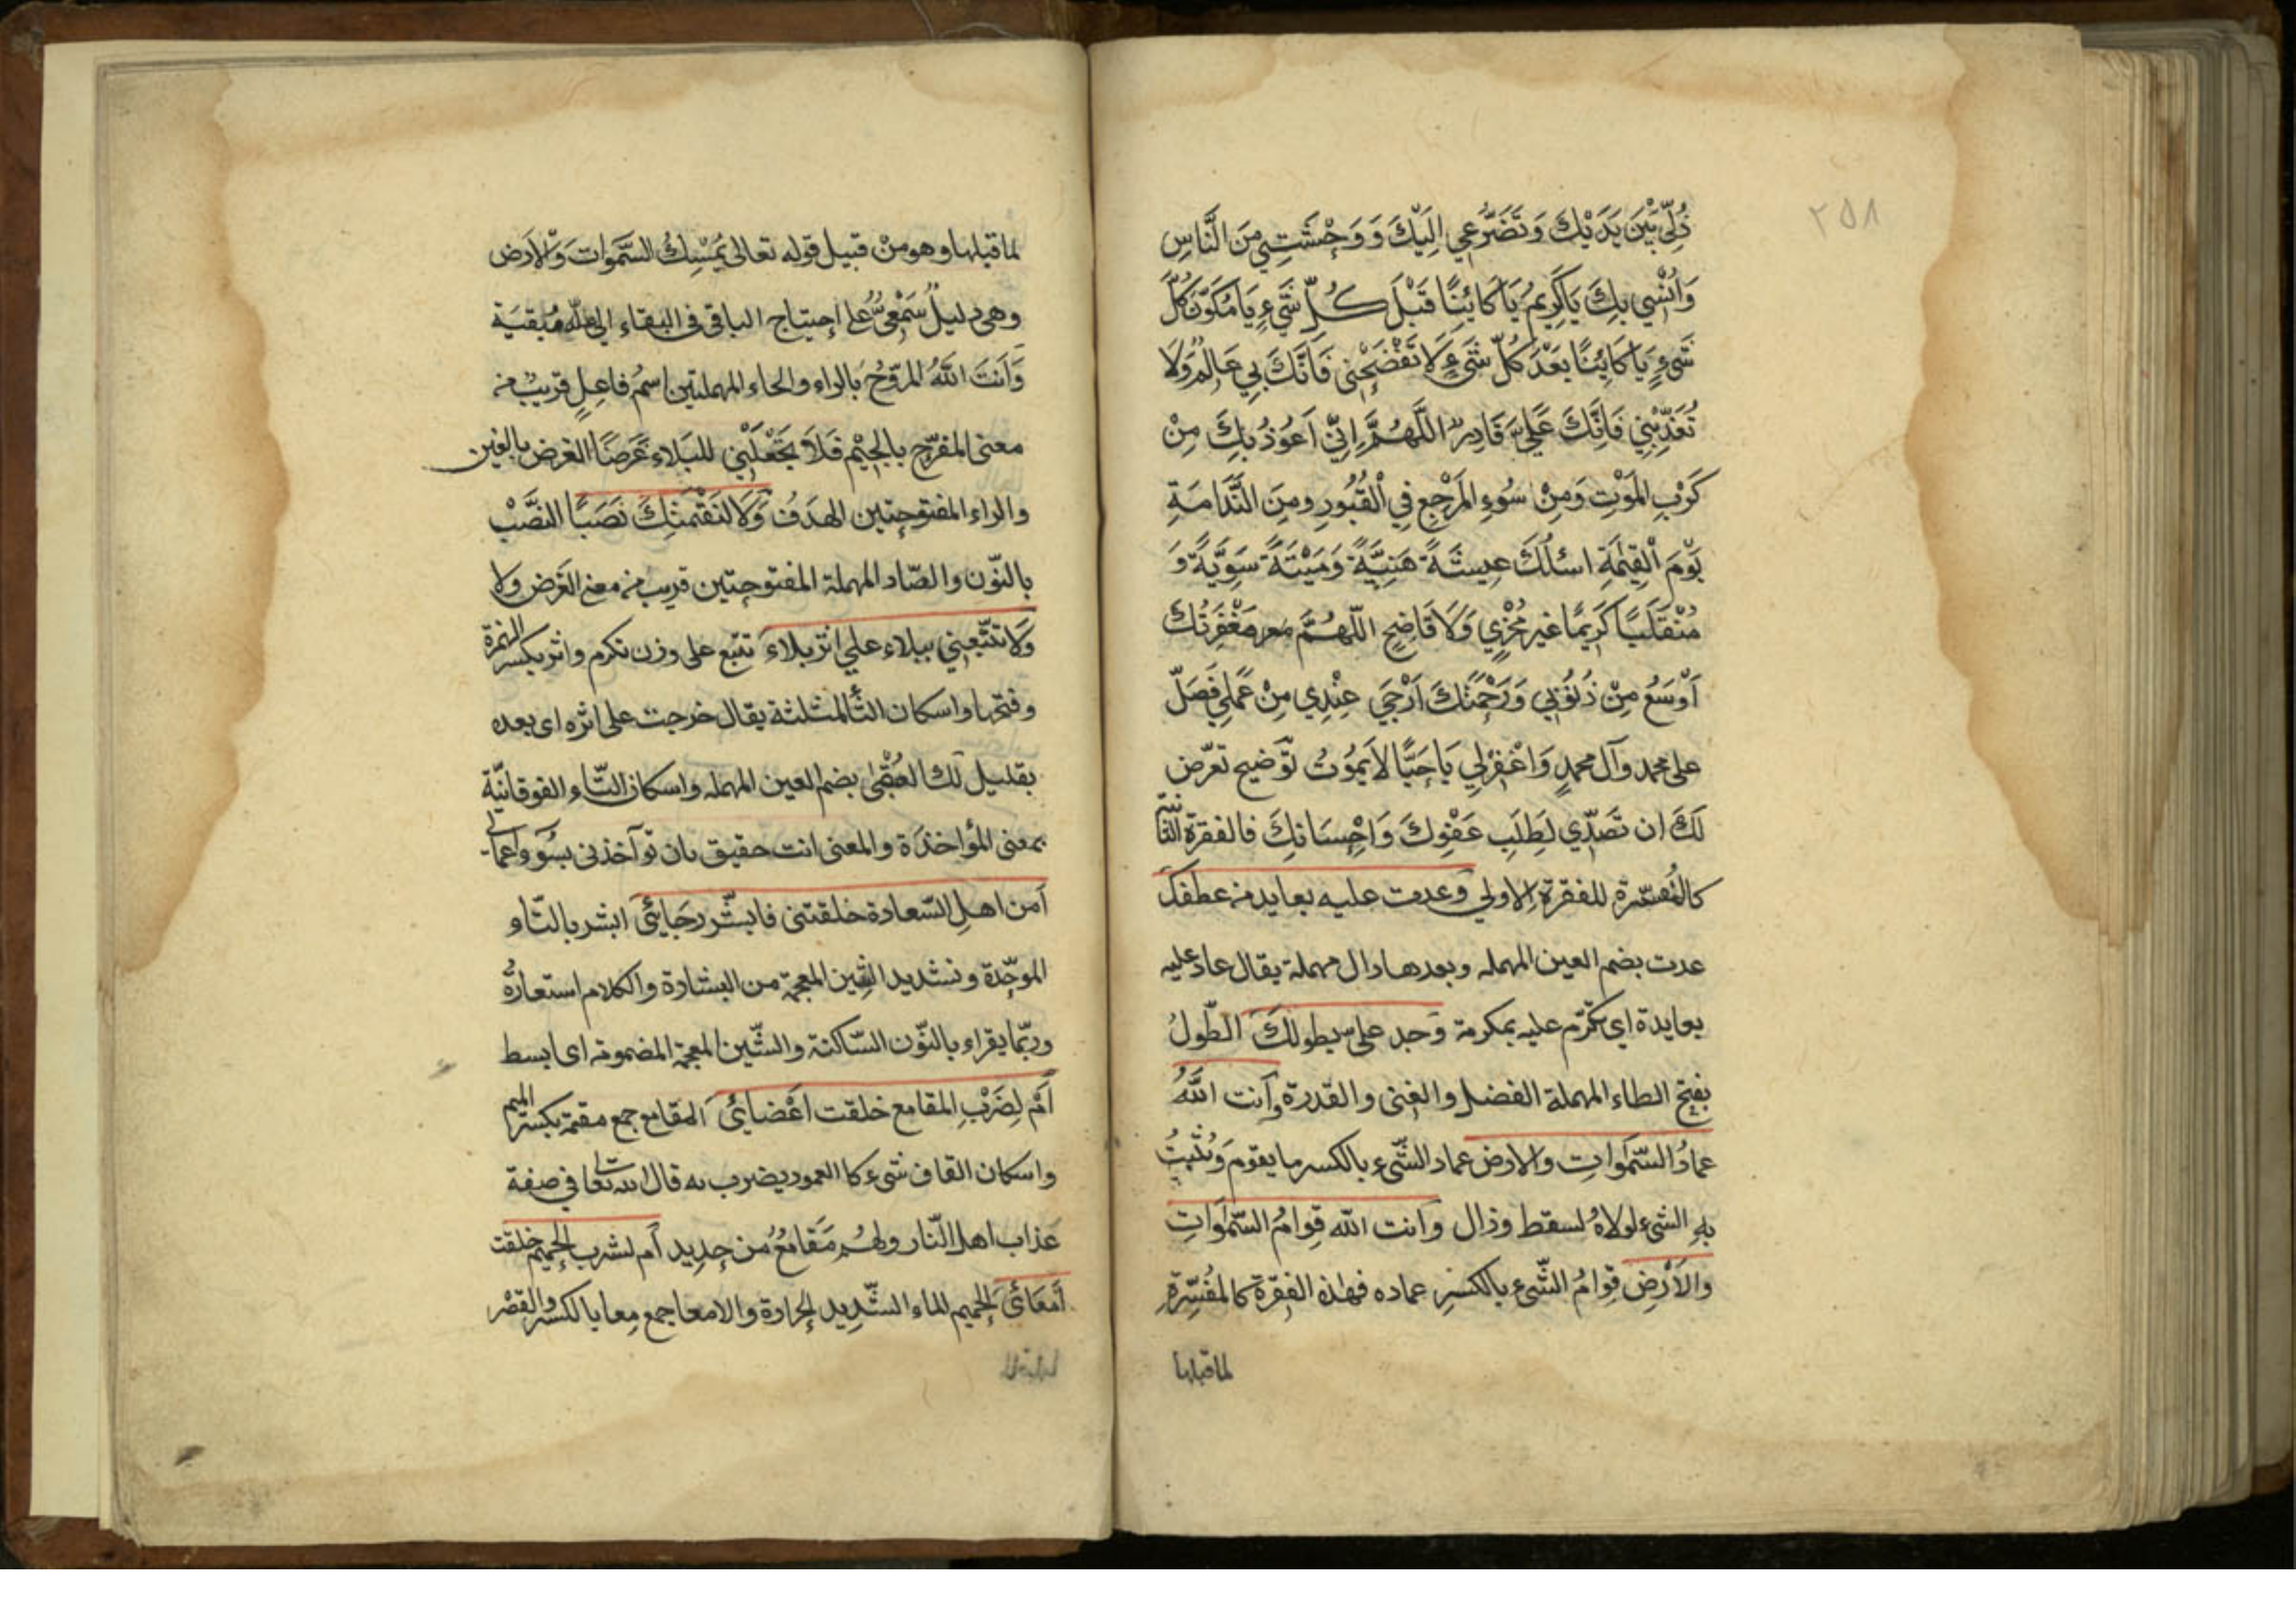 ٢٥٨
ذُلّي بَيْنَ يَدَيْكَ وَتَضَرُّعي اِلَيْكَ وَ وَحْشَتي مِنَ النَّاسِ
وَاُنْسِي بِكَ يَاكَرِيمُ يَا كَائِنًا قَبْلَ كُلِّ شَيْءٍ يَا مُكَوِّنَ كُلِّ
شَيْءٍ يَا كَائِنًا بَعْدَ كُلِّ شَيْءٍ لَا تَفْضَحْنِي فَاِنَّكَ بِي عَالِمٌ وَلَا
تُعَذِّبْنِي فَاِنَّكَ عَلَيَّ قَادِرٌ اللَّهُمَّ اِنِّي اَعُوذُ بِكَ مِنْ
كَرْبِ المَوْتِ وَمِنْ سُوءِ المَرْجِعِ فِي الْقُبُورِ ومِنَ النَّدَامَةِ
يَوْمَ الْقِيٰمَةِ اسئلُكَ عِيشَةً هَنِيَّةً وَمَيْتَةً سَوِيَّةً وَ
مُنْقَلَبًا كَرِيمًا غير مُخْزِي وَلَا فَاضِحٍ اللّهُمَّ مغفِرَتُكَ
اَوْسَعُ مِنْ ذُنُوبِي وَرَحْمَتُكَ اَرْجَى عِنْدِي مِنْ عَمَلِي فَصَلِّ
على محمد وآل محمدٍ وَاغْفِرْلِي يَا حَيًّا لَا يَمُوتُ تَوضيح تعرّض
لَكَ ان تَصَدّي لِطَلَبِ عَفْوِكَ وَاِحْسَانِكَ فالفقرة الثانية
كالمُفسّرة للفقرة الاولي وعدت عليه بعايد من عطفك
عدت بضم العين المهمله وبعدها دال مهملة يقال عاد عليه
بعايدة اي تكرّم عليه بمكرمة وَجد على بطولك الطَّولُ
بفتح الطاء المهملة الفضل والغنى والقدرة وانت اللّٰهُ
عمادُ السّمٰواتِ والارض عماد الشّيء بالكسر مايقوم وَيُثْبِتُ
بهِ الشيء لولاهُ لسقط وزال وانت اللّٰه قِوامُ السّمٰوَاتِ
والاَرْضِ قِوامُ الشّيء بالكسْرِ عماده فهذه الفقرة كالمُفسِّرةِ
لماقبلها
لماقبلها وهو مِنْ قبيل قوله تعالى يُمْسِكُ السَّمٰوات وَالاَرضَ
وهى دليلٌ سَمْعِيٌّ على احتياج الباقى فى البقاء الى علّة مُبقيَة
وَاَنتَ اللّٰهُ المرَوّحُ بالراء والحاء المهملتين اسمُ فاعِلٍ قريبٌ من
معنى المفرّح بالجيم فَلَا تَجْعَلْنِي للبَلاء غَرَضًا الغرض بالغين
والراء المفتوحتين الهدَفُ وَلَا لنَقْمَتِكَ نَصَبًا النصَّبْ
بالنّون والصّاد المهملة المفتوحتين قريب من معنى الغَرض ولا
وَلَا تتبعني ببلاء علي اثر بلاء تتبع على وزن تكرم واثر بكسر الهمزة
وفتحها واسكان الثاء المثلثة يقال خرجت على اثره اى بعده
بقليل لك العُتْبٰى بضم العين المهمله واسكان التّاء الفوقانيّة
بمعنى المؤاخذة والمعنى انت حقيق بان تؤآخذنى بسُوء اعمالي
اَمن اهلِ السّعادة خلقتنى فابشّر رجَايئى ابشر بالبّاء
الموحّدة وتشديد الشّين المعجمة من البشارة والكلام استعارةٌ
وربّما يقراء بالنّون السّاكنة والشّين المعجمة المضمومه اى ابسط
اَم لِضَرْبِ المقامع خلقت اعْضايئى المقامع جمع مقمة بكسر الميم
واسكان القاف شىء كا العمود يضرب به قال الله تعالى في صفة
عذاب اهل النّار ولهُم مَقامعُ من حديد اَم لشرب الحميم خلقت
اَمعَائى الحميم الماء الشّديد الحرارة والامعا جمع مِعا بالكسر والقصْر